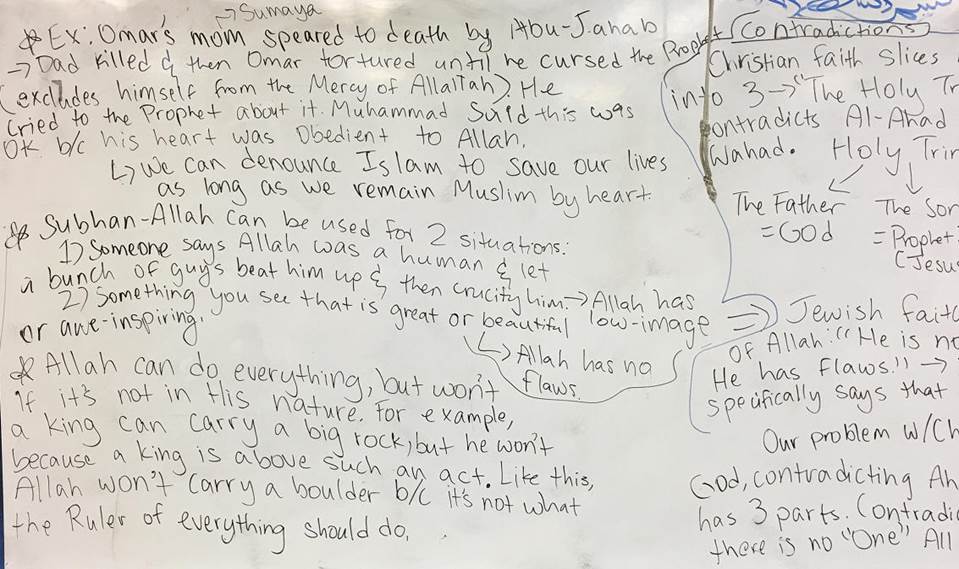 → Sumaya
* Ex: Omar's mom speared to death by Abu-Jahab
→ Dad killed & then Omar tortured until he cursed the Prophet
(excludes himself from the Mercy of Allah) He
cried to the Prophet about it. Muhammad said this was
OK b/c his heart was Obedient to Allah.
↳ We can denounce Islam to save our lives
as long as we remain Muslim by heart.
* Subhan-Allah can be used for 2 situations:
1) Someone says Allah was a human & let
a bunch of guys beat him up & then crucify him. → Allah has
low-image
2) Something you see that is great or beautiful
or awe-inspiring.
↳ Allah has no
flaws.
* Allah can do everything, but won't
if it's not in His nature. For example,
a king can carry a big rock, but he won't
because a king is above such an act. Like this,
Allah won't carry a boulder b/c it's not what
the Ruler of everything should do.
Contradictions
Christian faith slices
into 3 → "The Holy Tr
contradicts Al-Ahad
Wahad. Holy Trin
The Father
= GOD
The Son
= Prophet
(Jesus
⇒ Jewish faith
of Allah: "He is no
He has flaws." →
specifically says that
Our problem w/Ch
God, contradicting Ah
has 3 parts. Contradic
there is no "One" All